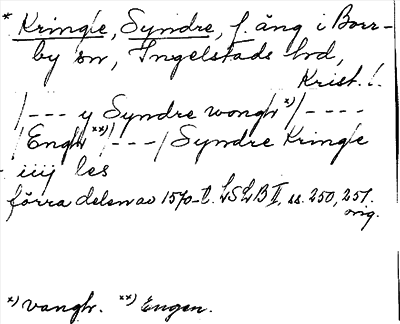 * Kringle, Syndre, f. äng i Borr-
by sn, Ingelstads hd,
Krist. l.
/--- y Syndre wongh *)/----
/Engh **)/---/ Syndre Kringle
iiij les
förra delen av 1570-t. LSLB II, ss. 250, 251.
orig.
*) vangh. **) Engen.